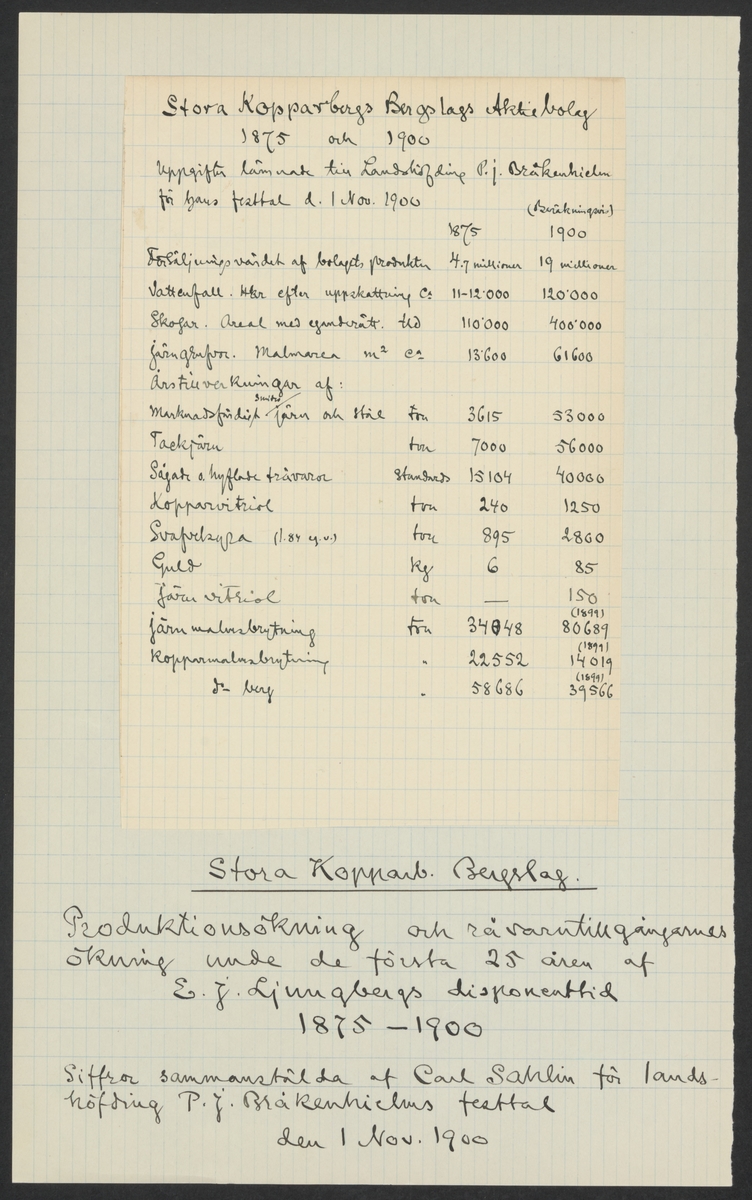 Stora Kopparbergs Bergslags Aktiebolag
1875 och 1900
Uppgifter lämnade till Landshöfding P. J. Bråkenhielm
för hans festtal d. 1 Nov. 1900
(Beräkningsvis)
1875 1900
Försäljningsvärdet af bolagets produkter 4.7 millioner 19 millioner
Vattenfall. Hkr efter uppskattning Ca 11-12'000 120'000
Skogar. Areal med eganderätt. tld 110'000 400'000
Järngrufvor. Malmarea m² ca 13'600 61600
Årstillverkningar af:
smidt
Marknadsfärdigt järn och stål ton 3615 53000
Tackjärn ton 7000 56000
Sågade o. hyflade trävaror Standards 15104 40000
Kopparvitriol ton 240 1250
Svafvelsyra (1.84 eg.v.) ton 895 2860
Guld kg 6 85
Järnvitriol ton — 150
(1899)
Järnmalmsbrytning ton 34048 80689
(1899)
Kopparmalmsbrytning " 22552 14019
(1899)
do berg " 58686 39566
Stora Kopparb. Bergslag.
Produktionsökning och råvarutillgångarnes
ökning unde de första 25 åren af
E. J. Ljungbergs disponenttid
1875 – 1900
Siffror sammanstälda af Carl Sahlin för lands-
höfding P. J. Bråkenhielms festtal
den 1 Nov. 1900